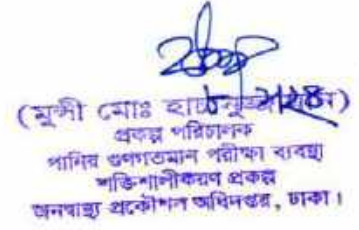 (মুন্সী মোঃ
প্রকল্প পরিচালক
পানির গুণগতমান পরীক্ষা ব্যবস্থা
শক্তিশালীকরণ প্রকল্প
জনস্বাস্থ্য প্রকৌশল অধিদপ্তর, ঢাকা।